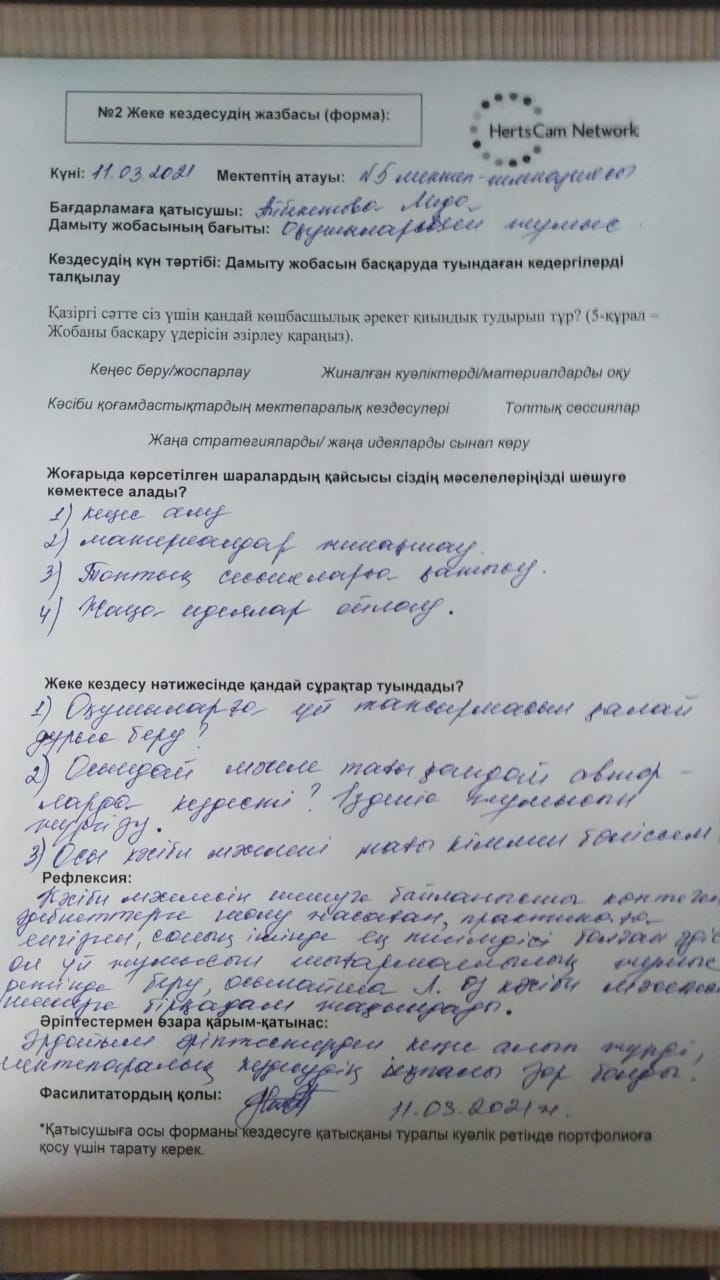 №2 Жеке кездесудің жазбасы (форма):
HertsCam Network
Күні: 11.03.2021 Мектептің атауы: №5 мектеп-гимназиясы
Бағдарламаға қатысушы: Лида
Дамыту жобасының бағыты: Оқушылармен жұмыс
Кездесудің күн тәртібі: Дамыту жобасын басқаруда туындаған кедергілерді
талқылау
Қазіргі сәтте сіз үшін қандай көшбасшылық әрекет қиындық тудырып тұр? (5-құрал –
Жобаны басқару үдерісін әзірлеу қараңыз).
Кеңес беру/жоспарлау Жиналған куәліктерді/материалдарды оқу
Кәсіби қоғамдастықтардың мектепаралық кездесулері Топтық сессиялар
Жаңа стратегияларды/ жаңа идеяларды сынап көру
Жоғарыда көрсетілген шаралардың қайсысы сіздің мәселелеріңізді шешуге
көмектесе алады?
1) кеңес алу
2) материалдар жинақтау.
3) Топтық сессияларға қатысу.
4) Жаңа идеялар ойлау.
Жеке кездесу нәтижесінде қандай сұрақтар туындады?
1) Оқушыларға үй тапсырмасын қалай
дұрыс беру?
2) Осындай мәселе тағы қандай автор-
ларда кездесті? Ізденіс жұмысын
жүргізу.
3) Осы кәсіби мәселені тағы кіммен бөлісем
Рефлексия:
Кәсіби мәселесін шешуге байланысты көптеген
әдебиеттерге шолу жасаған, практикаға
енгізген, соның ішінде ең тиімдісі болған әдіс
ол үй жұмысын шығармашылық жұмыс
ретінде беру, осылайша Л. өз кәсіби мәселесін
шешуге бірқадам жақындады.
Әріптестермен өзара қарым-қатынас:
Әрдайым әріптестерден кеңес алып жүрді,
мектепаралық кездесудің ықпалы зор болды!
Фасилитатордың қолы: 11.03.2021ж.
*Қатысушыға осы форманы кездесуге қатысқаны туралы куәлік ретінде портфолиоға
қосу үшін тарату керек.